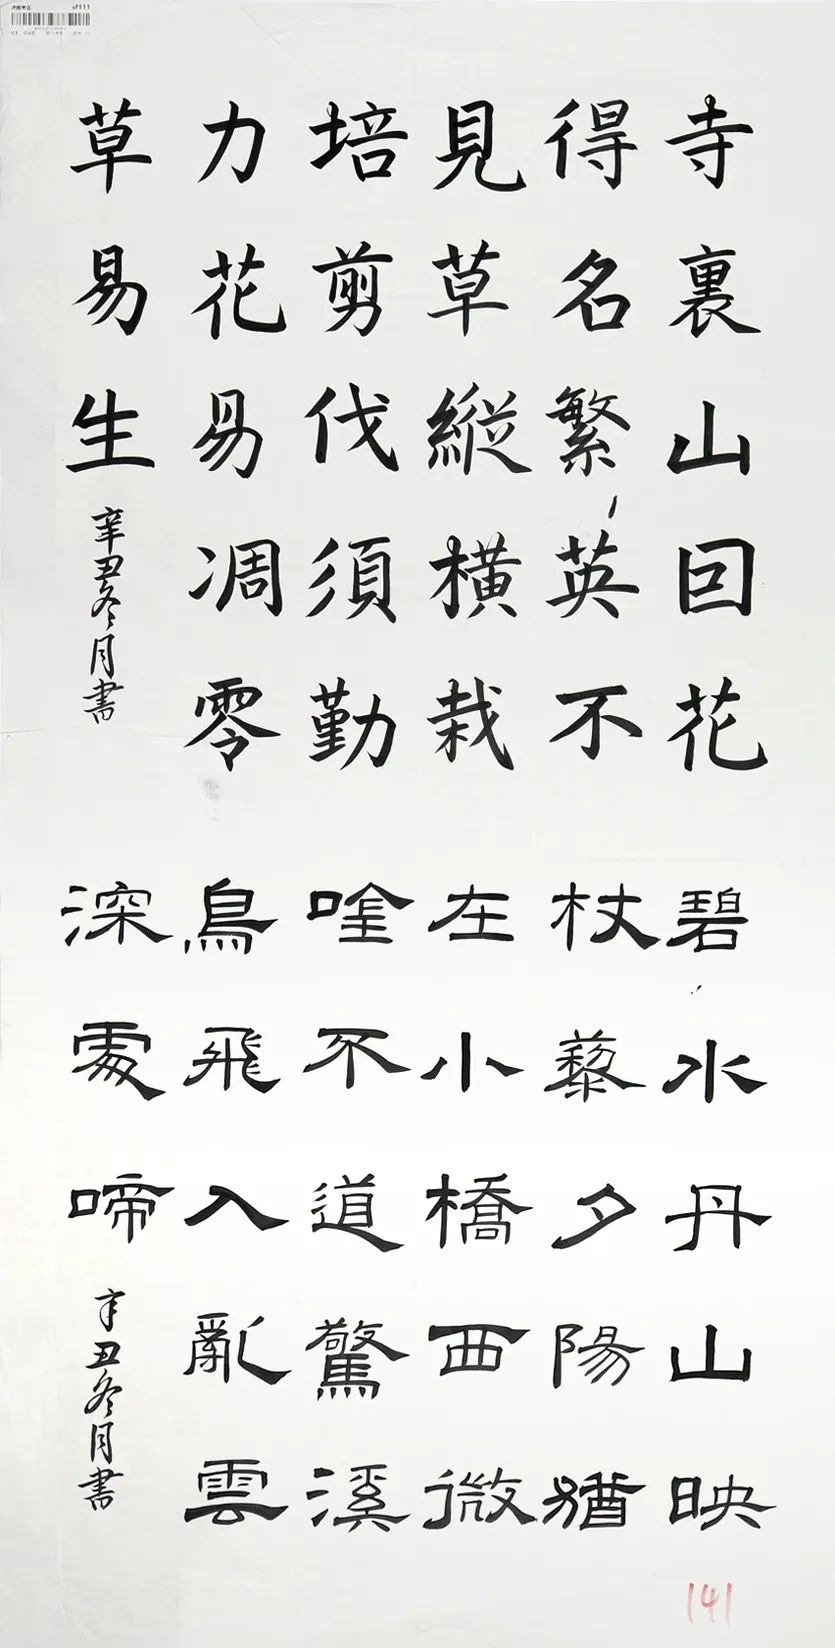 寺裏山回花
得名繁英不
見草縱橫栽
培剪伐須勤
力花易凋零
草易生
辛丑冬月書
碧水丹山映
杖藜夕陽猶
在小橋西微
唫不道驚溪
鳥飛入亂雲
深處啼
辛丑冬月書
141
xf111